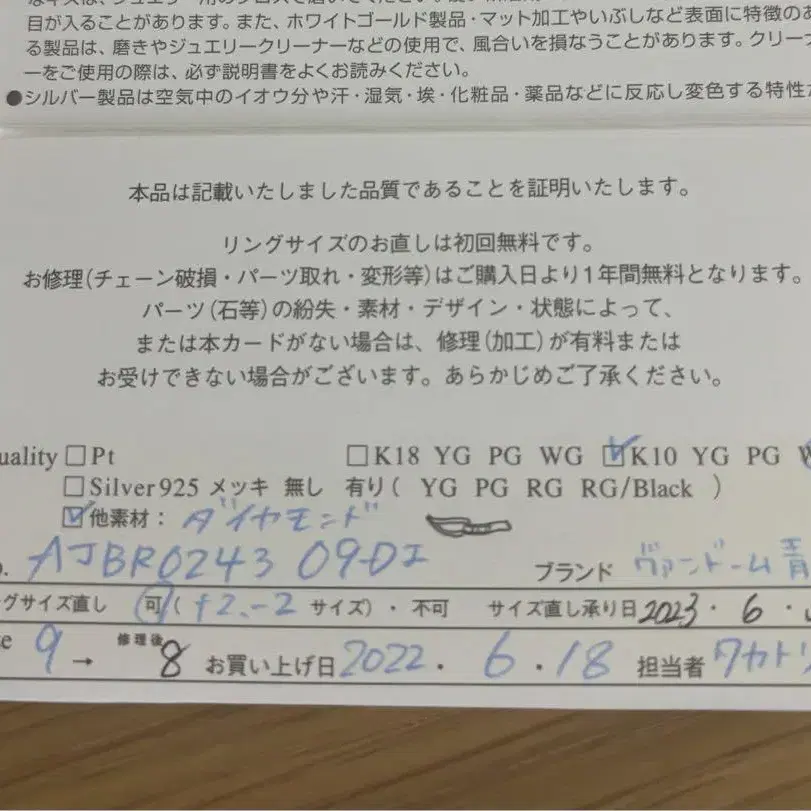 目が入ることがあります。また、ホワイトゴールド製品・マット加工やいぶしなど表面に特徴のあ
る製品は、磨きやジュエリークリーナーなどの使用で、風合いを損なうことがあります。クリーナ
ーをご使用の際は、必ず説明書をよくお読みください。
●シルバー製品は空気中のイオウ分や汗・湿気・埃・化粧品・薬品などに反応し変色する特性が
本品は記載いたしました品質であることを証明いたします。
リングサイズのお直しは初回無料です。
お修理(チェーン破損・パーツ取れ・変形等)はご購入日より1年間無料となります。
パーツ(石等)の紛失・素材・デザイン・状態によって、
または本カードがない場合は、修理(加工)が有料または
お受けできない場合がございます。あらかじめご了承ください。
uality □Pt □K18 YG PG WG ☑K10 YG PG W
□Silver925 メッキ 無し 有り( YG PG RG RG/Black )
☑他素材: ダイヤモンド
o. AJBR0243 09-DI ブランド ヴァンドーム青
グサイズ直し 可(+2.-2 サイズ)・不可 サイズ直し承り日 2023・6・
ze 9 → 修理後 8 お買い上げ日 2022. 6.18 担当者 ワカトリ